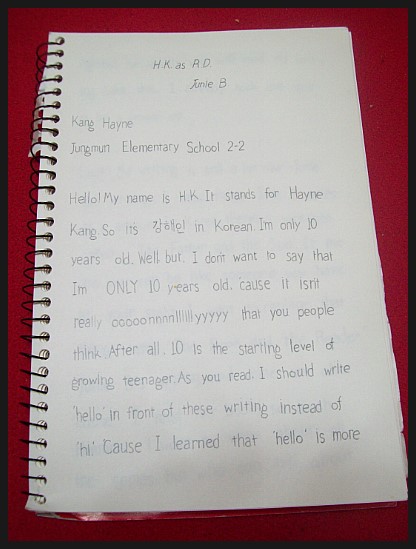 H.K. as R.D.
Junie B.
Kang Hayne
Jungmun Elementary School 2-2
Hello! My name is H.K It stands for Hayne
Kang. So its 강해인 in Korean. Im only 10
years old. Well, but, I don't want to say that
I'm ONLY 10 years old. 'cause it isn't
really ooooonnnnlllllyyyyy that you people
think. After all, 10 is the starting level of
growing teenager. As you read, I should write
'hello' in front of these writing instead of
'hi.' 'Cause I learned that 'hello' is more